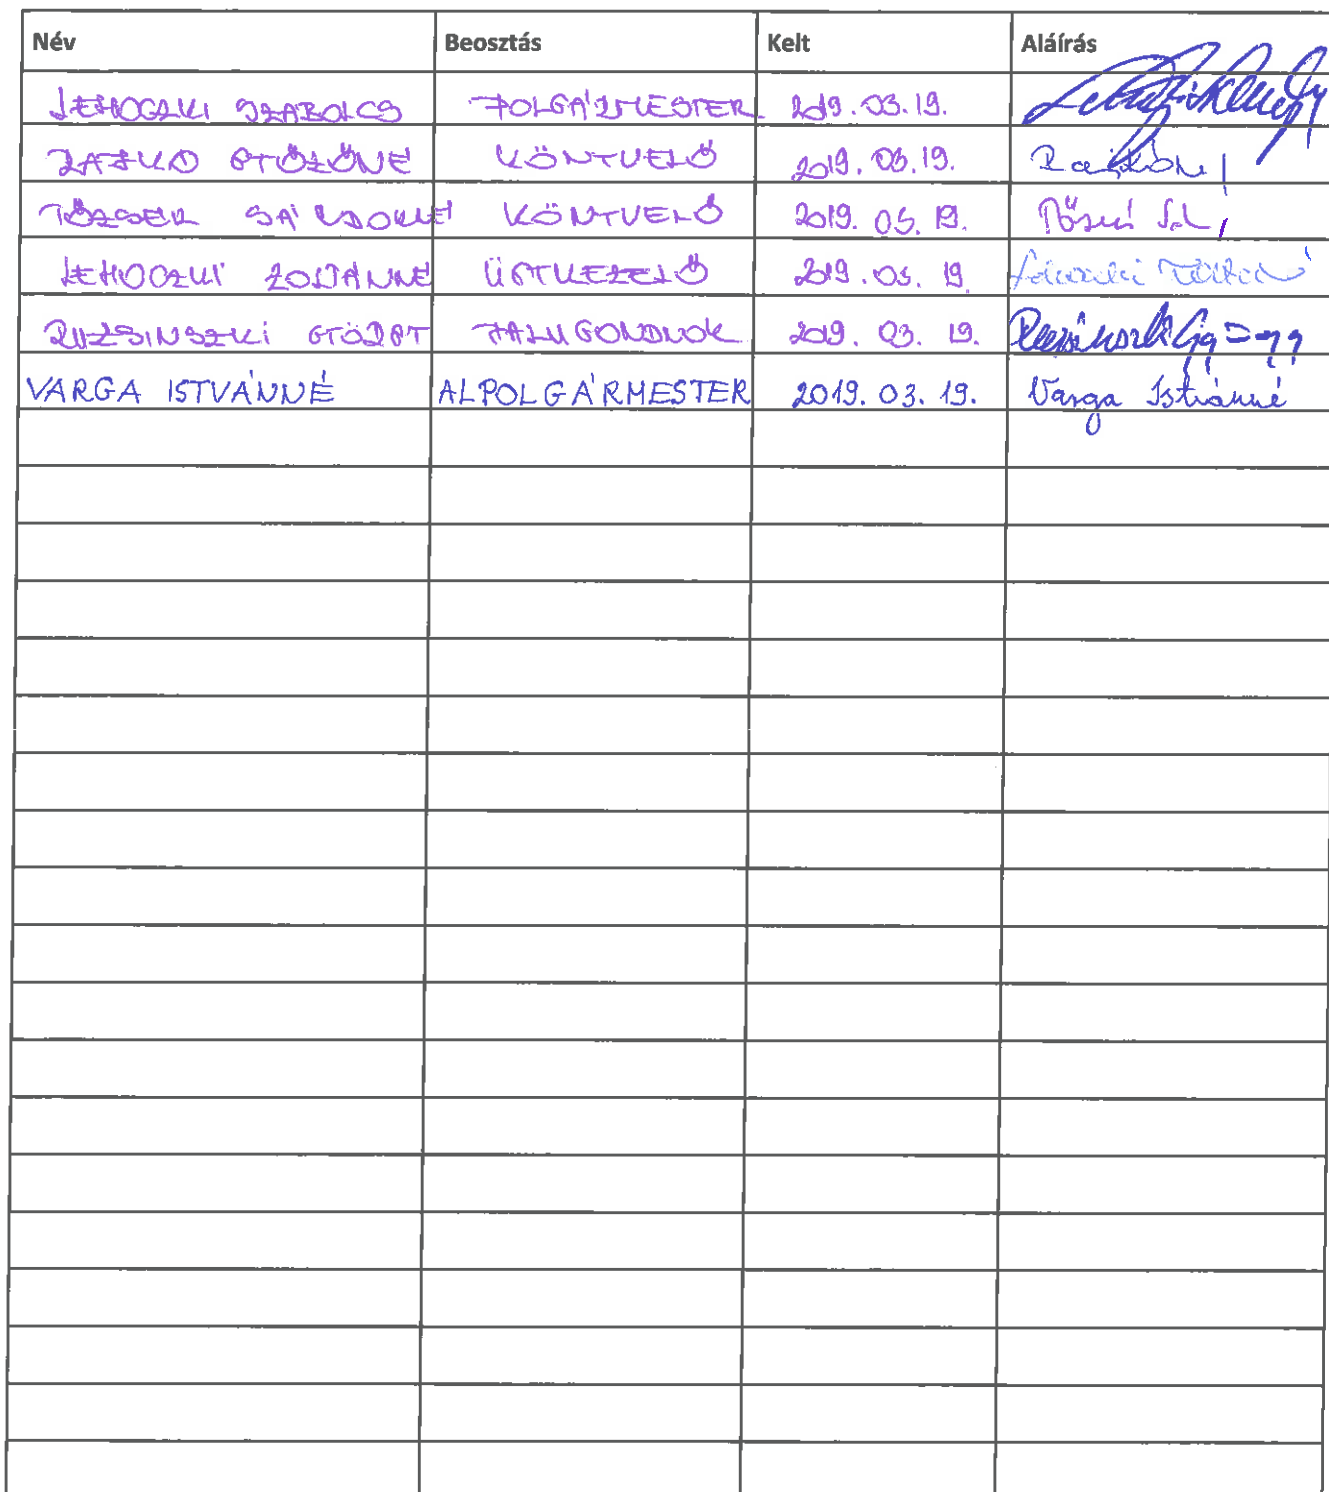 Név Beosztás Kelt Aláírás
LEHOCZKI SZABOLCS POLGÁRMESTER 2019.03.19.
RAFKO GYŐZŐNÉ KÖNYVELŐ 2019.03.19.
TŐZSÉR SÁNDORNÉ KÖNYVELŐ 2019.03.19.
LEHOCZKI ZOLTÁNNÉ ÜGYKEZELŐ 2019.03.19. Lehoczki Zoltánné
RUZSINSZKI GYÖRGY FALUGONDNOK 2019.03.19.
VARGA ISTVÁNNÉ ALPOLGÁRMESTER 2019.03.19. Varga Istvánné